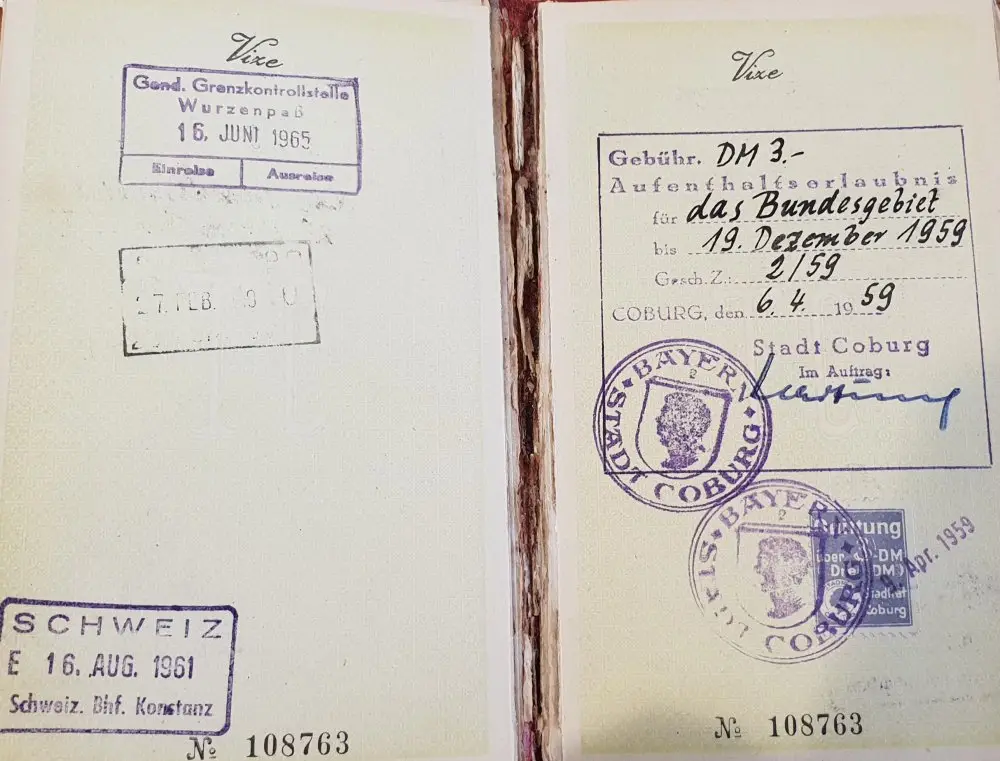 Vize
Gend. Grenzkontrollstelle
Wurzenpaß
16. JUNI 1965
Einreise
Ausreise
27. FEB.
SCHWEIZ
E 16. AUG. 1961
Schweiz. Bhf. Konstanz
№ 108763
Vize
Gebühr. DM 3.-
Aufenthaltserlaubnis
für das Bundesgebiet
bis 19. Dezember 1959
Gesch.Z.: 2/59
COBURG, den 6. 4. 1959
Stadt Coburg
Im Auftrag:
BAYERN
2
STADT COBURG
BAYERN
2
STADT COBURG
Quittung
über 3-DM
Drei DM
Stadtrat
Coburg
Apr. 1959
№ 108763